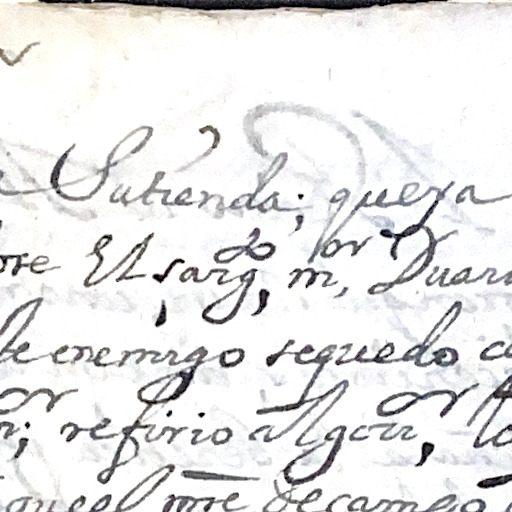 Sutienda; queya
bre El sarg,do m,or Duar
le enemigo sequedo co
refirio al gou,or lo
quel mre decampo